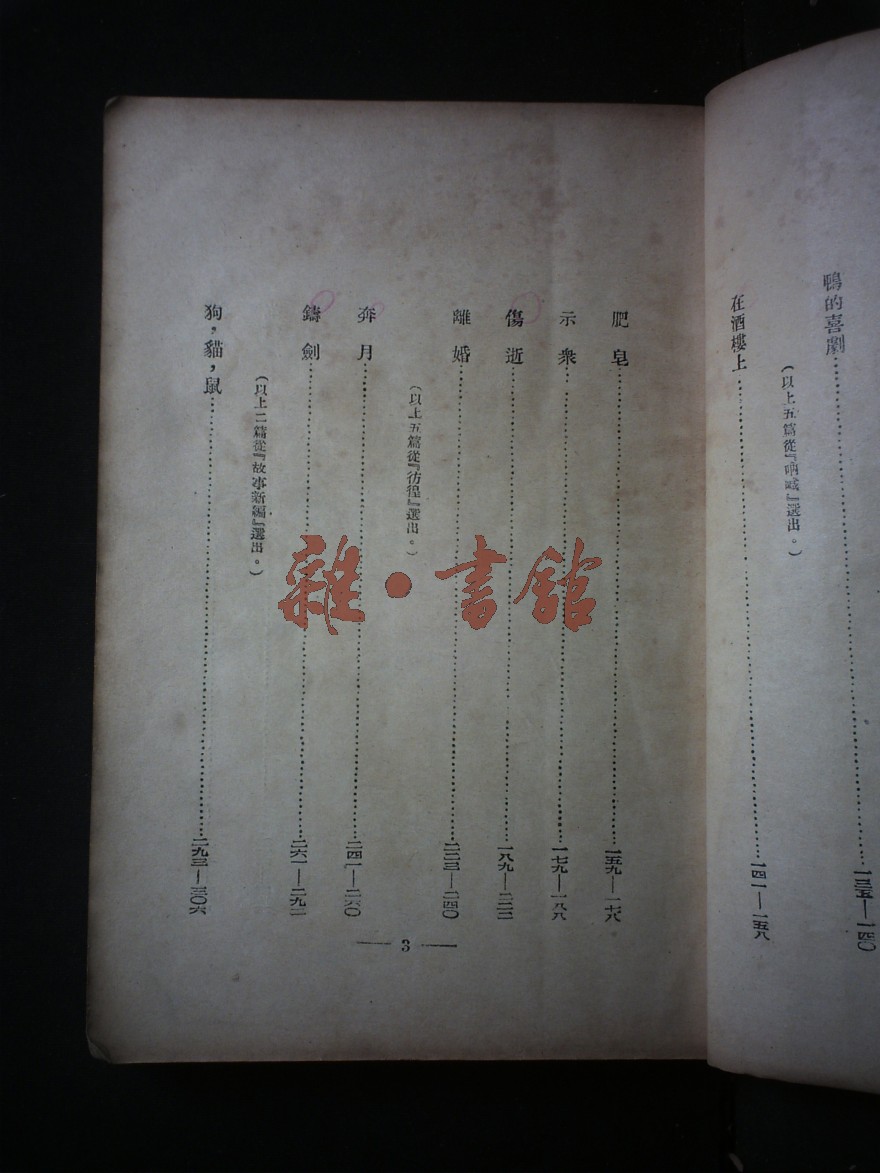 鴨的喜劇……一三五—一四〇
(以上五篇從『吶喊』選出。)
在酒樓上……一四一—一五八
肥皂……一五九—一七八
示衆……一七九—一八八
傷逝……一八九—二二二
離婚……二二三—二四〇
(以上五篇從『彷徨』選出。)
奔月……二四一—二六〇
鑄劍……二六一—二九二
(以上二篇從『故事新編』選出。)
狗，貓，鼠……二九三—三〇六
— 3 —
雜·書館